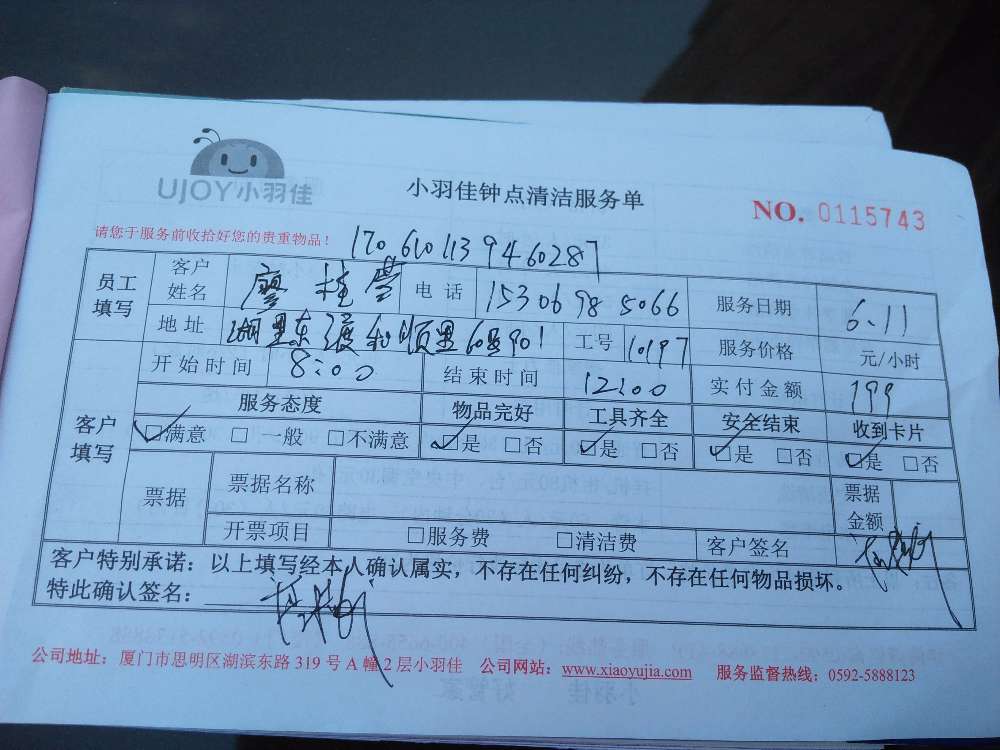 UJOY小羽佳
小羽佳钟点清洁服务单
NO. 0115743
请您于服务前收拾好您的贵重物品！
170610113946 0287
员工填写 客户姓名 廖桂莺 电话 15306985066 服务日期 6.11
地址 湖里东渡和顺里60号901 工号 10197 服务价格 元/小时
客户填写 开始时间 8:00 结束时间 12:00 实付金额 199
服务态度 物品完好 工具齐全 安全结束 收到卡片
☑满意 □一般 □不满意 ☑是 □否 ☑是 □否 ☑是 □否 ☑是 □否
票据 票据名称 票据金额
开票项目 □服务费 □清洁费 客户签名
客户特别承诺：以上填写经本人确认属实，不存在任何纠纷，不存在任何物品损坏。
特此确认签名：
公司地址：厦门市思明区湖滨东路 319 号 A 幢 2 层小羽佳 公司网站：www.xiaoyujia.com 服务监督热线：0592-5888123